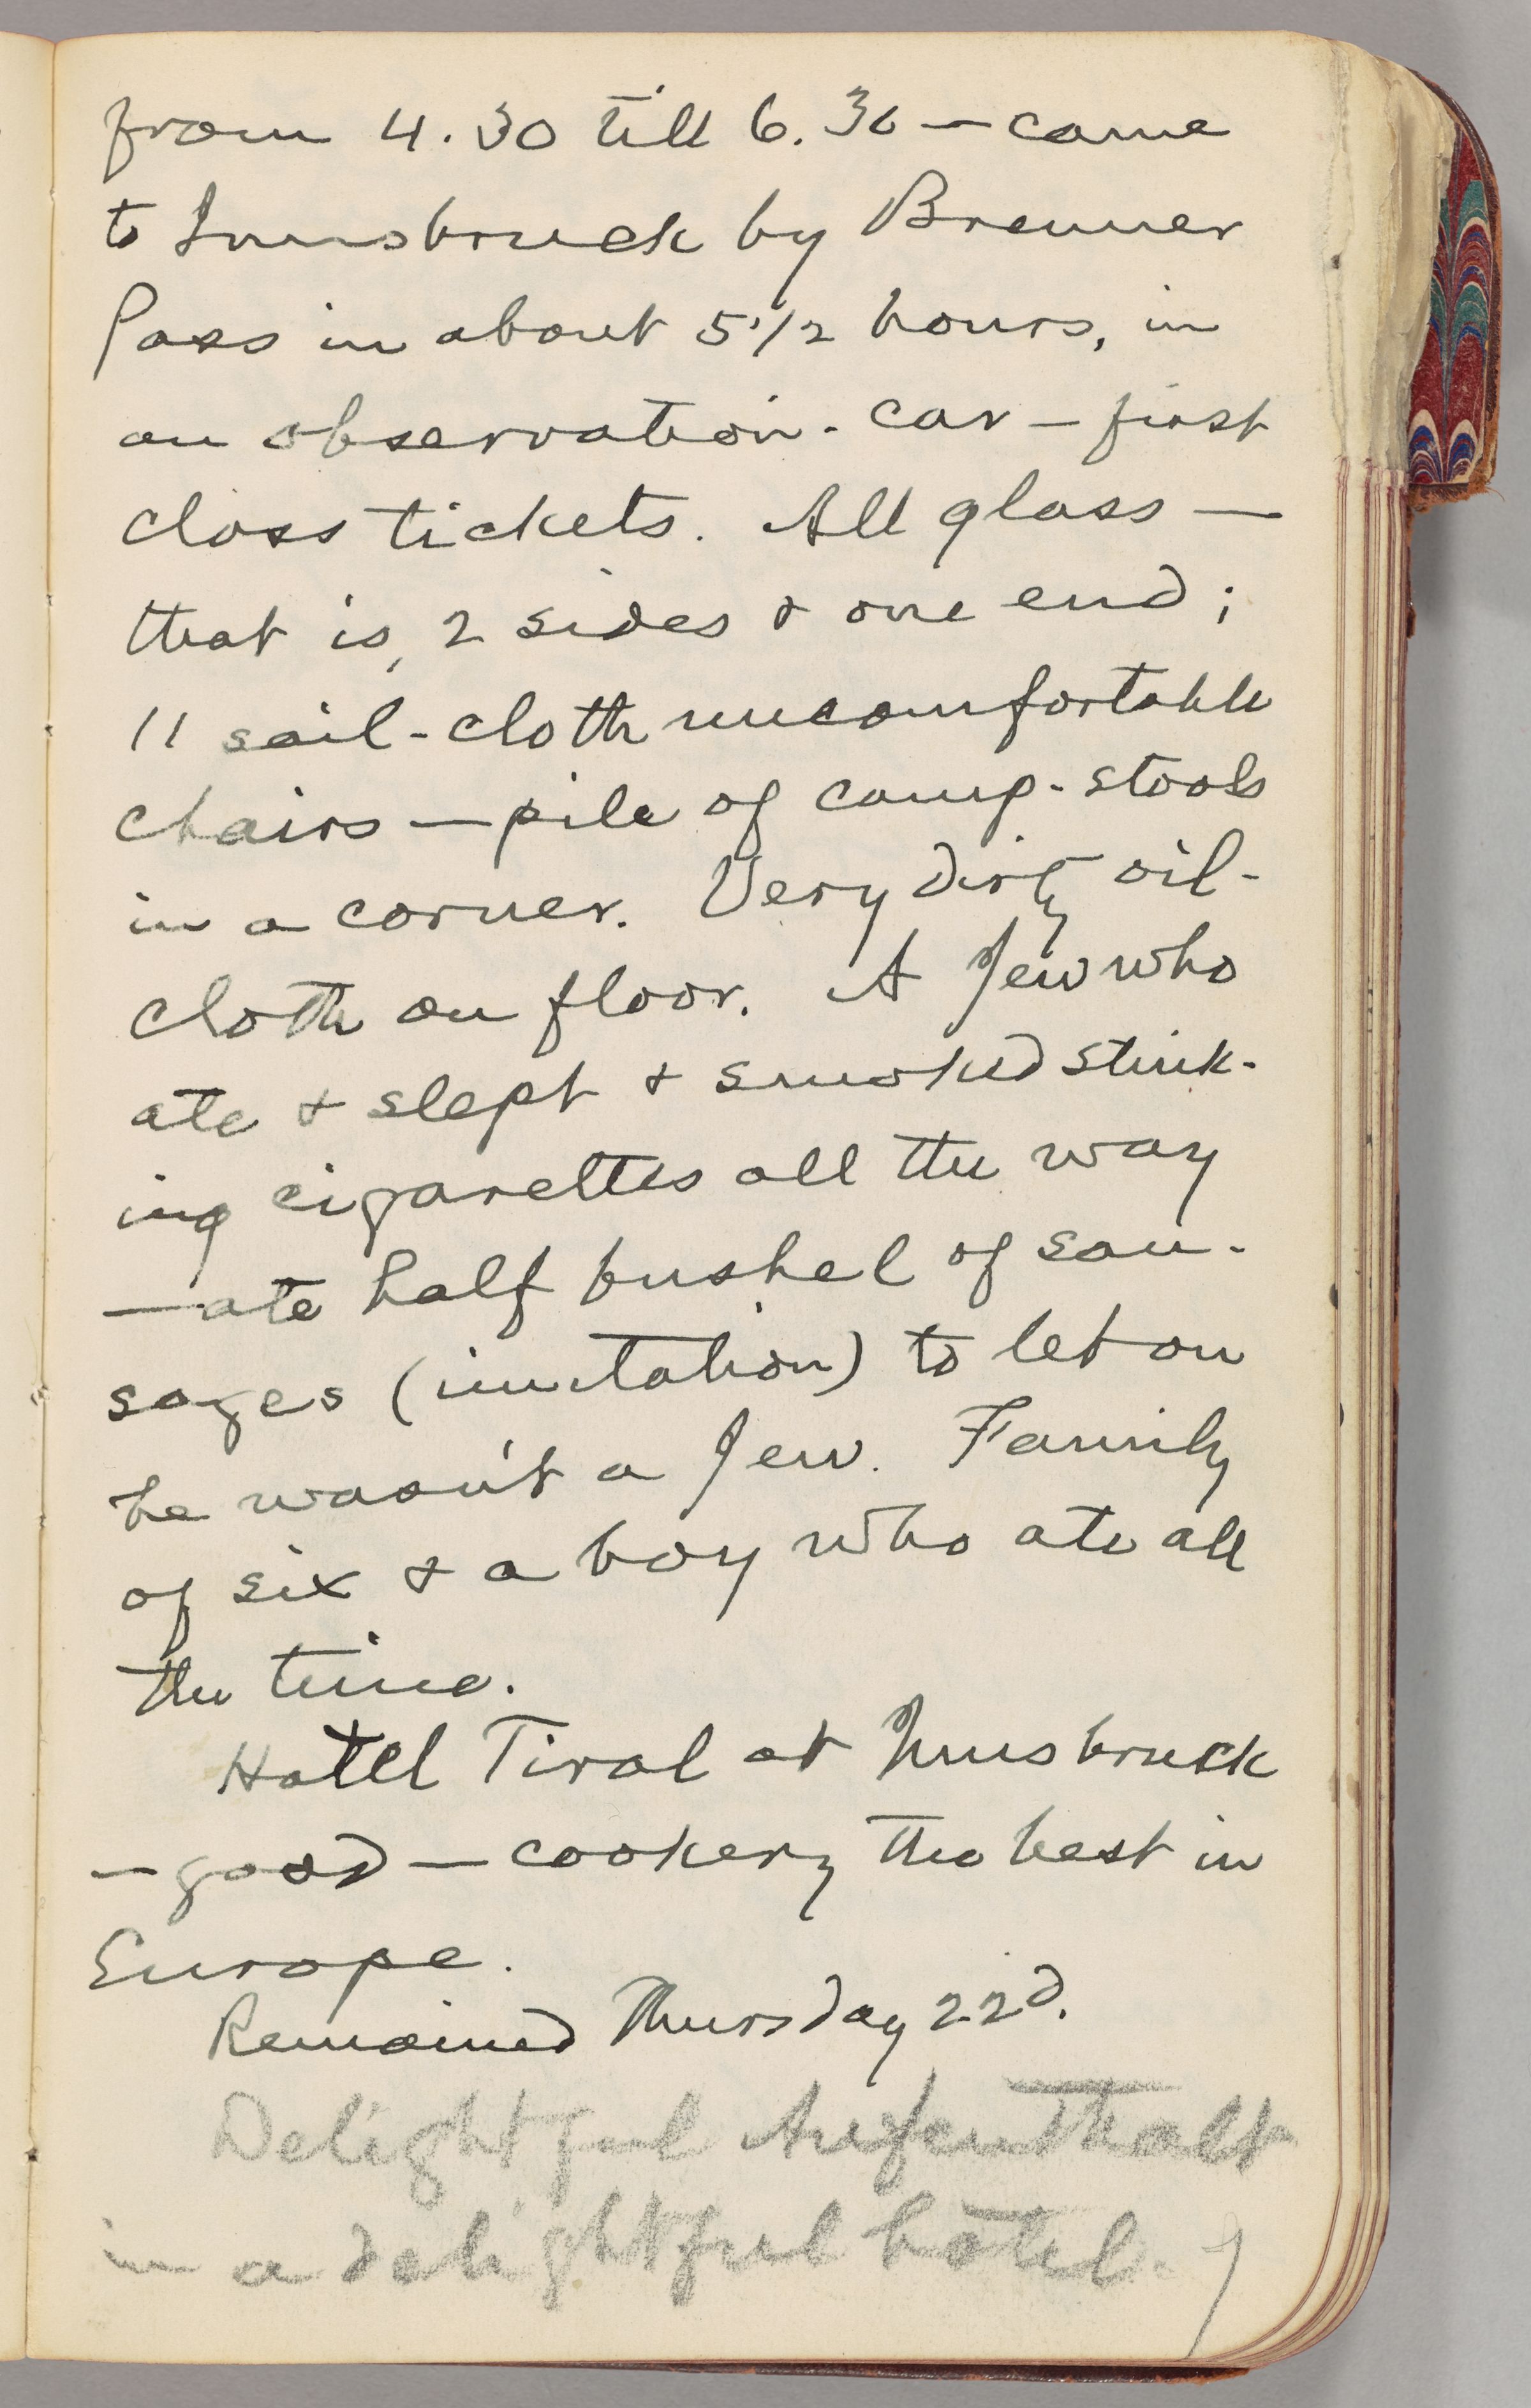 from 4.30 till 6.30 — came
to Innsbruck by Brenner
Pass in about 5 1/2 hours, in
an observation-car — first
class tickets. All glass —
that is, 2 sides & one end;
11 sail-cloth uncomfortable
chairs — pile of camp-stools
in a corner. Very dirty oil-
cloth on floor. A Jew who
ate & slept & smoked stink-
ing cigarettes all the way
— ate half bushel of sau-
sages (imitation) to let on
he wasn't a Jew. Family
of six & a boy who ate all
the time.
Hotel Tirol at Innsbruck
— good — cookery the best in
Europe.
Remained Thursday 22d.
Delightful Aufenthalt
in a delightful hotel.